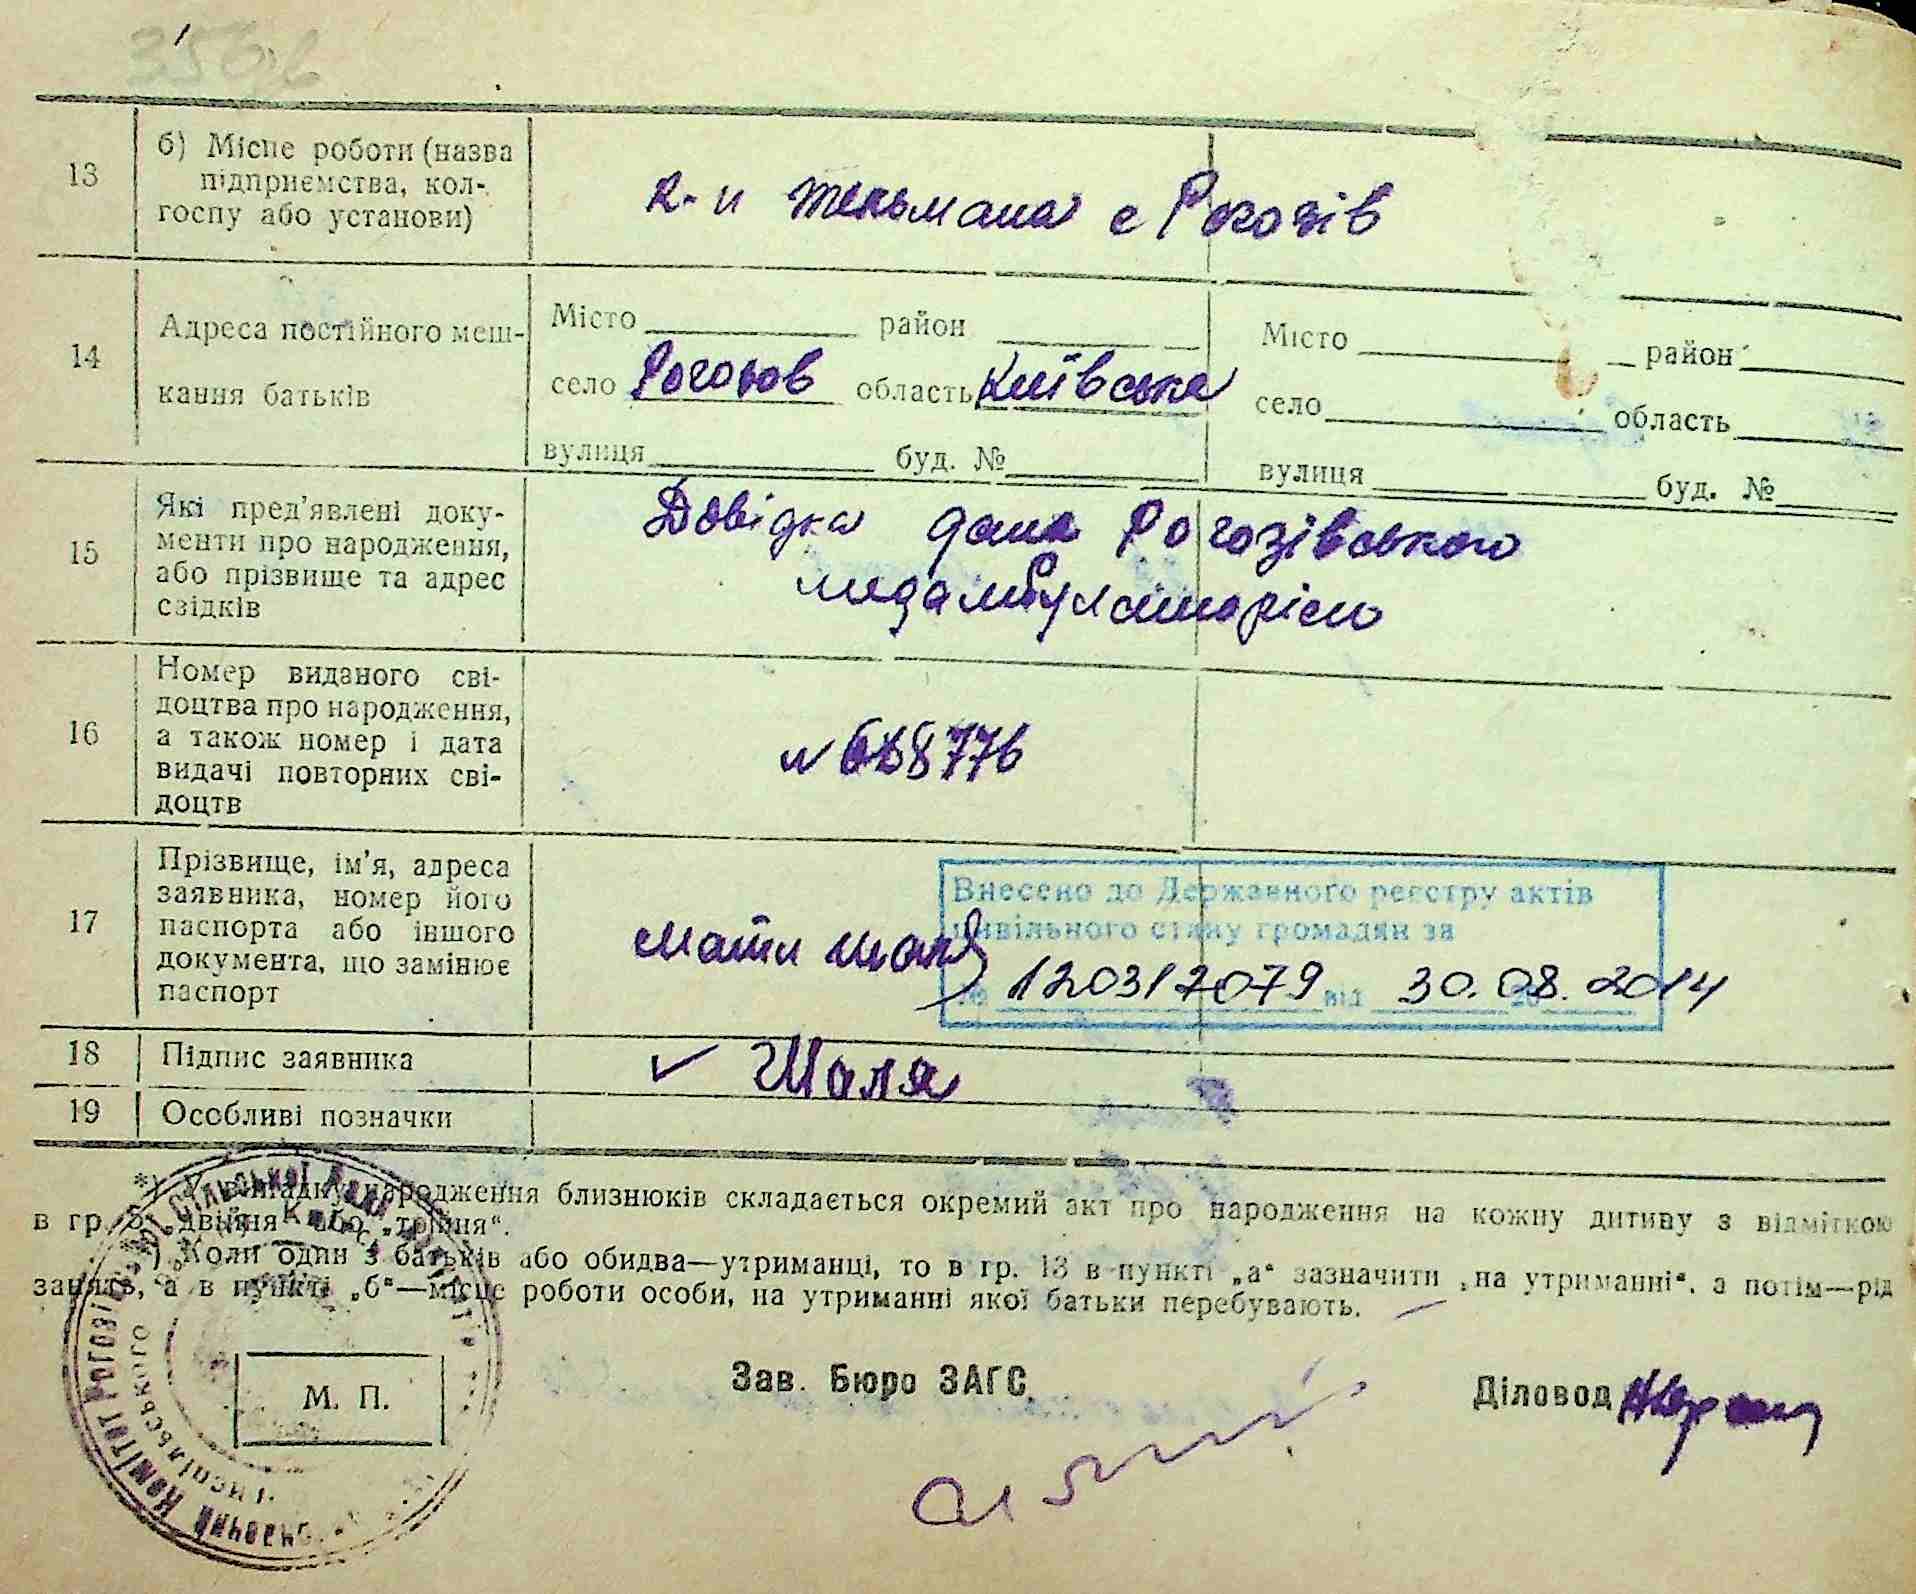 356
13 б) Місце роботи (назва
підприємства, кол-
госпу або установи)
к-п Тельмана с Рогозів
14 Адреса постійного меш-
кання батьків
Місто район
село Рогозов область Київська
вулиця буд. №
Місто район
село область
вулиця буд. №
15 Які пред'явлені доку-
менти про народження,
або прізвище та адрес
свідків
Довідка дана Рогозівською
медамбулаторією
16 Номер виданого сві-
доцтва про народження,
а також номер і дата
видачі повторних сві-
доцтв
17 Прізвище, ім'я, адреса
заявника, номер його
паспорта або іншого
документа, що замінює
паспорт
Мати Шаля
Внесено до Державного реєстру актів
цивільного стану громадян за
№ 120317079 від 30.08.2014
18 Підпис заявника
Шаля
19 Особливі позначки
*) У випадку народження близнюків складається окремий акт про народження на кожну дитину з відміткою
в гр. „двійня" або „трійня".
) Коли один з батьків або обидва—утриманці, то в гр. 13 в пункті „а" зазначити „на утриманні", а потім—рід
занять, а в пункті „б"—місце роботи особи, на утриманні якої батьки перебувають.
М. П.
Зав. Бюро ЗАГС
Діловод